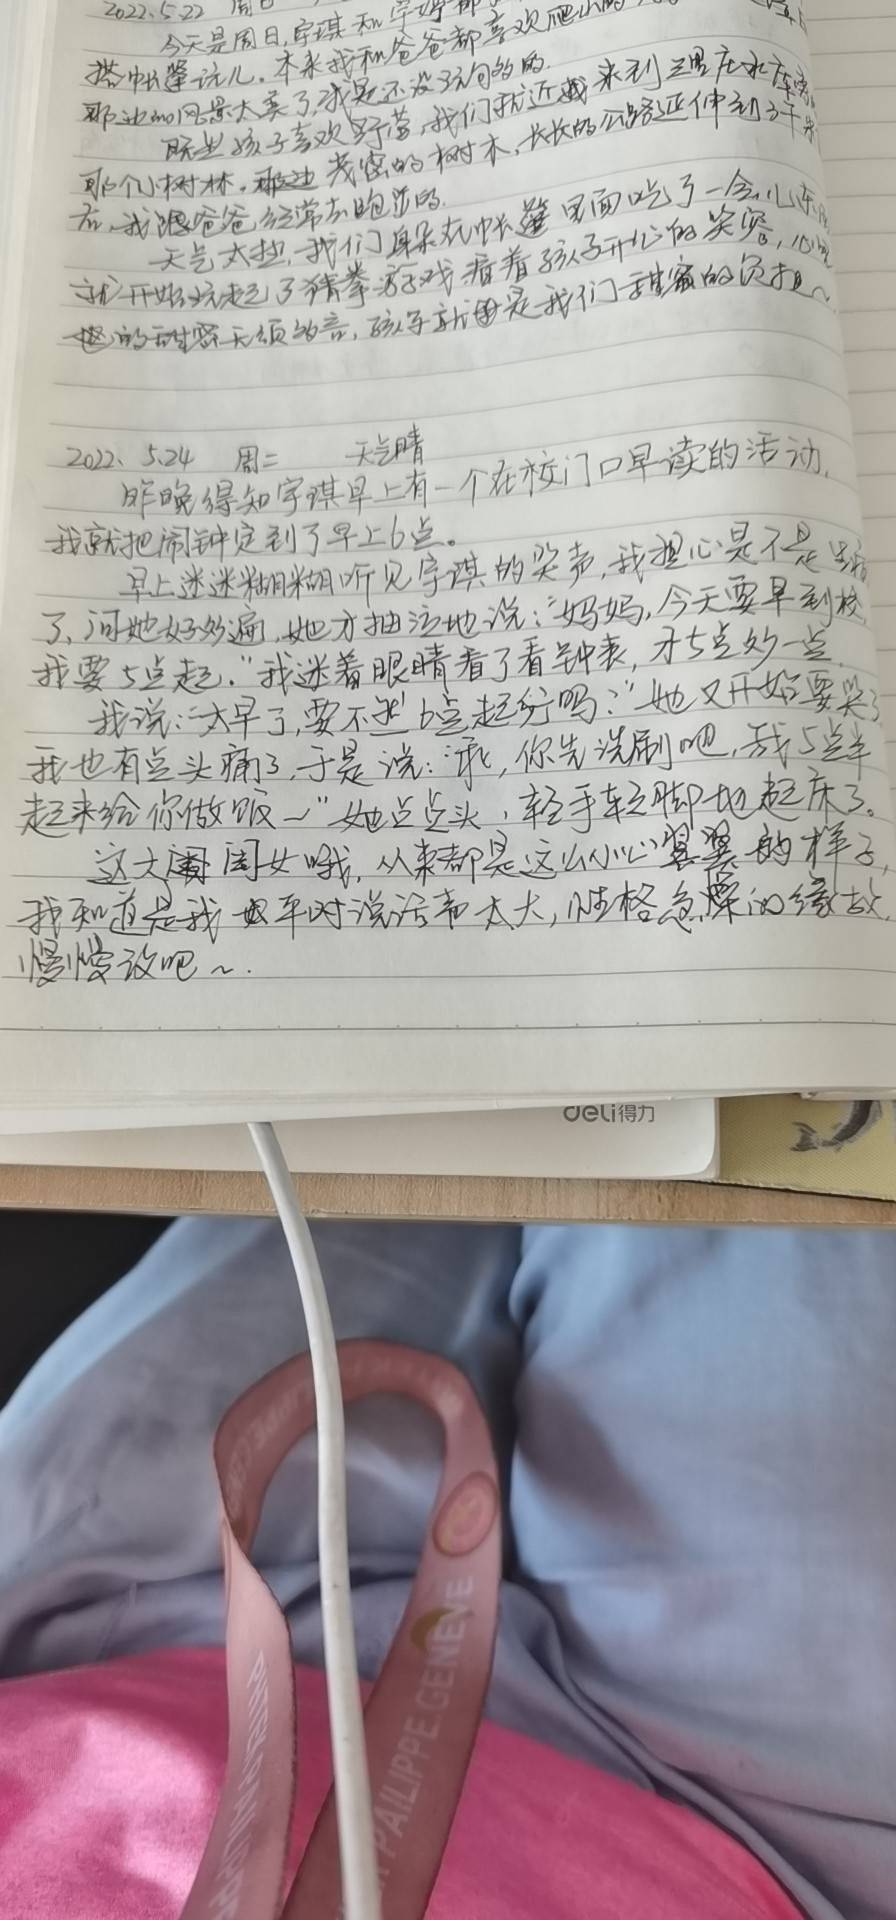 2022.5.22 周日
今天是周日,宇琪和宇婷都喜欢爬山
搭帐篷玩儿。本来我和爸爸都
那边的风景太美了,我是还没玩够的
既然孩子喜欢野营,我们就近来到三里庄水库
那个小树林。茂密的树木,长长的公路延伸到
我跟爸爸经常去跑步的。
天气太热,我们躲在帐篷里面吃了一会儿东
就开始玩起了猜拳游戏看着孩子开心的笑容,
的甜蜜无须多言,孩子就是我们甜蜜的负担~
2022、5.24 周二 天气晴
昨晚得知宇琪早上有一个在校门口早读的活动,
我就把闹钟定到了早上6点。
早上迷迷糊糊听见宇琪的哭声,我担心是不是
了,问她好几遍,她才抽泣地说:“妈妈,今天要早到校,
我要5点起。”我迷着眼睛看了看钟表,才5点多一点,
我说:“太早了,要不6点起行吗?”她又开始要哭了
我也有点头痛了,于是说:“乖,你先洗刷吧,我5点半
起来给你做饭~”她点点头,轻手轻脚地起床了。
这大闺女哦,从来都是这么小心翼翼的样子,
我知道是我平时说话声太大,性格急躁的缘故,
慢慢改吧~.
deli得力
PAILIPPE.GENEVE